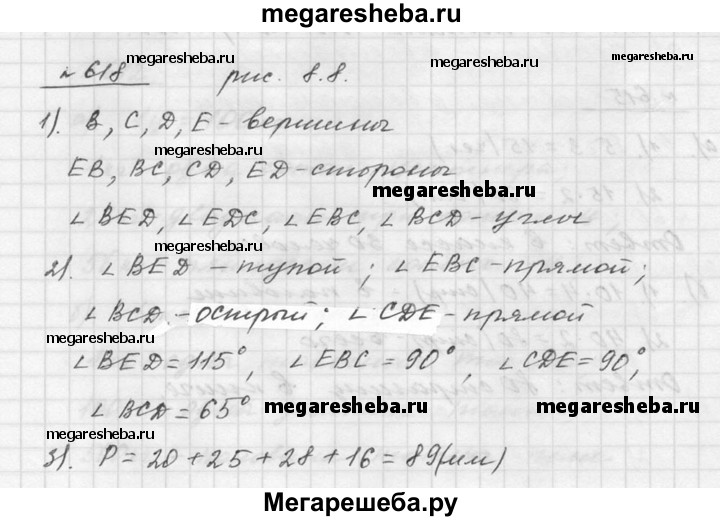 megaresheba.ru
№ 618 megaresheba.ru рис. 8.8. megaresheba.ru
1). B, C, D, E - вершины
EB, BC, CD, ED - стороны
megaresheba.ru
∠ BED, ∠ EDC, ∠ EBC, ∠ BCD - углы
megaresheba.ru
2). ∠ BED - тупой; ∠ EBC - прямой;
∠ BCD - острый; ∠ CDE - прямой
∠ BED = 115°, ∠ EBC = 90°, ∠ CDE = 90°,
∠ BCD = 65° megaresheba.ru megaresheba.ru
megaresheba.ru
3). P = 20 + 25 + 28 + 16 = 89 (мм)
Мегарешеба.ру